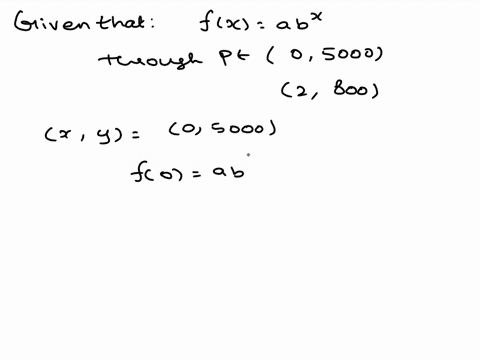 Given that: f(x) = ab^x
through pt (0, 5000)
(2, 800)
(x, y) = (0, 5000)
f(0) = ab